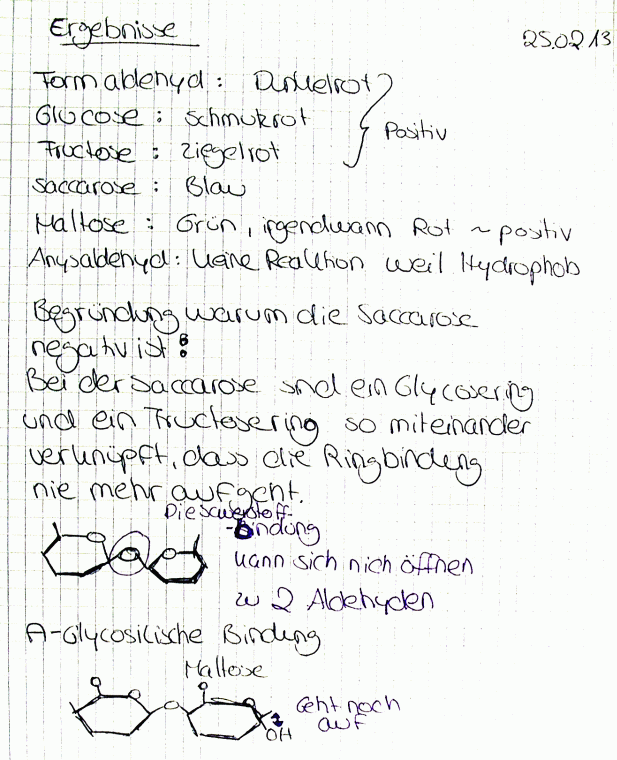 Ergebnisse
25.02.13
Formaldehyd : Dunkelrot
Glucose : schmukrot
Positiv
Fructose : Ziegelrot
Saccarose : Blau
Maltose : Grün, irgendwann Rot ~ positiv
Anysaldehyd : keine Reaktion weil Hydrophob
Begründung warum die Saccarose
negativ ist :
Bei der Saccarose sind ein Glycosering
und ein Fructosering so miteinander
verknüpft, dass die Ringbindung
nie mehr aufgeht.
Die Sauerstoff-
-bindung
kann sich nich öffnen
zu 2 Aldehyden
A-Glycosilische Bindung
Maltose
Geht noch
auf
OH